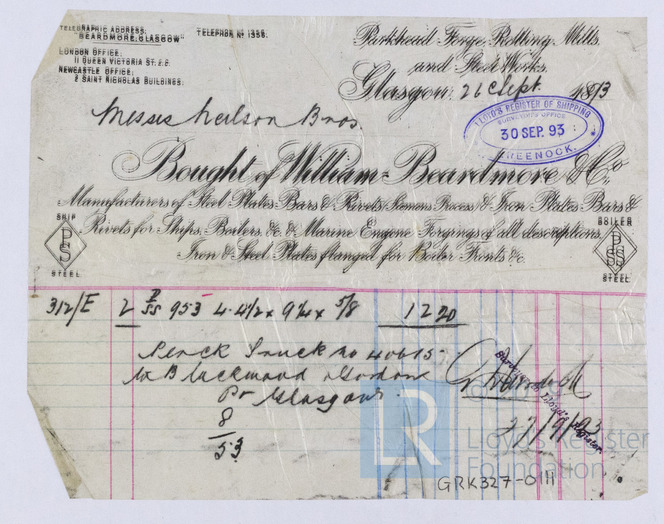 TELEGRAPHIC ADDRESS:
"BEARDMORE, GLASGOW"
TELEPHONE Nº 1356.
LONDON OFFICE:
11 QUEEN VICTORIA ST. E.C.
NEWCASTLE OFFICE:
2 SAINT NICHOLAS BUILDINGS.
Parkhead Forge, Rolling Mills,
and Steel Works.
Glasgow, 26 Sept. 1893
Messrs Neilson Bros.
LLOYD'S REGISTER OF SHIPPING
SURVEYORS OFFICE
30 SEP. 93
GREENOCK.
Bought of William Beardmore & Co
Manufacturers of Steel Plates Bars & Rivets, Siemens Process & Iron Plates Bars &
Rivets for Ships, Boilers, &c & Marine Engine Forgings of all descriptions.
Iron & Steel Plates flanged for Boiler Fronts &c.
SHIP
B
S
STEEL
BOILER
B
SS
STEEL
312/E 2 B/SS 953 4.4½ x 9¼ x 5/8 1220
Truck no 40615
Blackwood & Gordon
Pt Glasgow.
8
53
27/9/93
Lloyd's Register.
LR
Lloyd's Register
Foundation
GRK327-0111